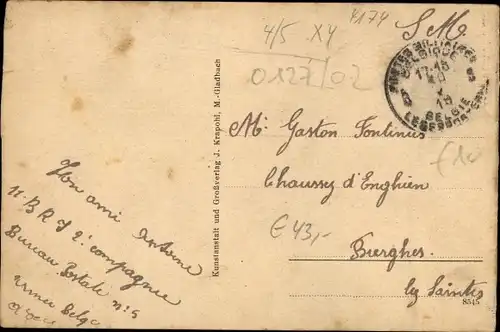 4/5 XY
4174
S M.
0127/02
POSTES MILITAIRES
BELGIQUE
17-18
19
BELGIE
LEGERPOSTERIJ
Mr Gaston Fontinus
Chaussez d'Enghien
Bierghes
lez Saintes
€ 43,-
8545
Kunstanstalt und Großverlag J. Krapohl, M.-Gladbach
Ton ami Antoine
11. B R I 2e compagnie
Bureau Postale n° 5
armée Belge